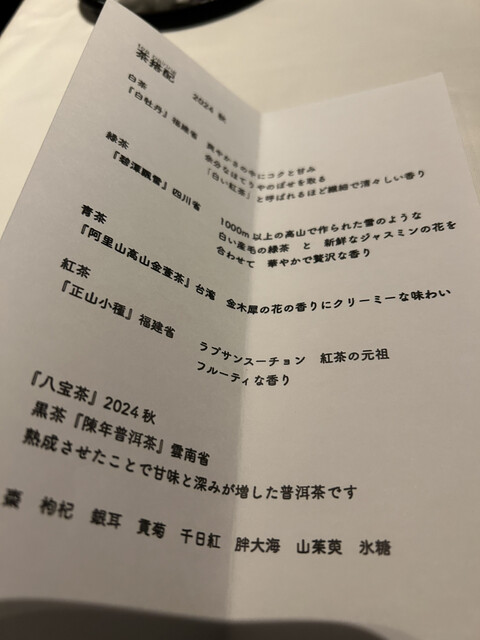 茶搭配 2024 秋
白茶
『白牡丹』福建省 爽やかさの中にコクと甘み
余分なほてりやのぼせを取る
「白い紅茶」と呼ばれるほど繊細で清々しい香り
緑茶
『碧潭飄雪』四川省 1000m以上の高山で作られた雪のような
白い産毛の緑茶 と 新鮮なジャスミンの花を
合わせて 華やかで贅沢な香り
青茶
『阿里山高山金萱茶』台湾 金木犀の花の香りにクリーミーな味わい
紅茶
『正山小種』福建省 ラプサンスーチョン 紅茶の元祖
フルーティな香り
『八宝茶』2024秋
黒茶『陳年普洱茶』雲南省
熟成させたことで甘味と深みが増した普洱茶です
棗 枸杞 銀耳 貢菊 千日紅 胖大海 山茱萸 氷糖